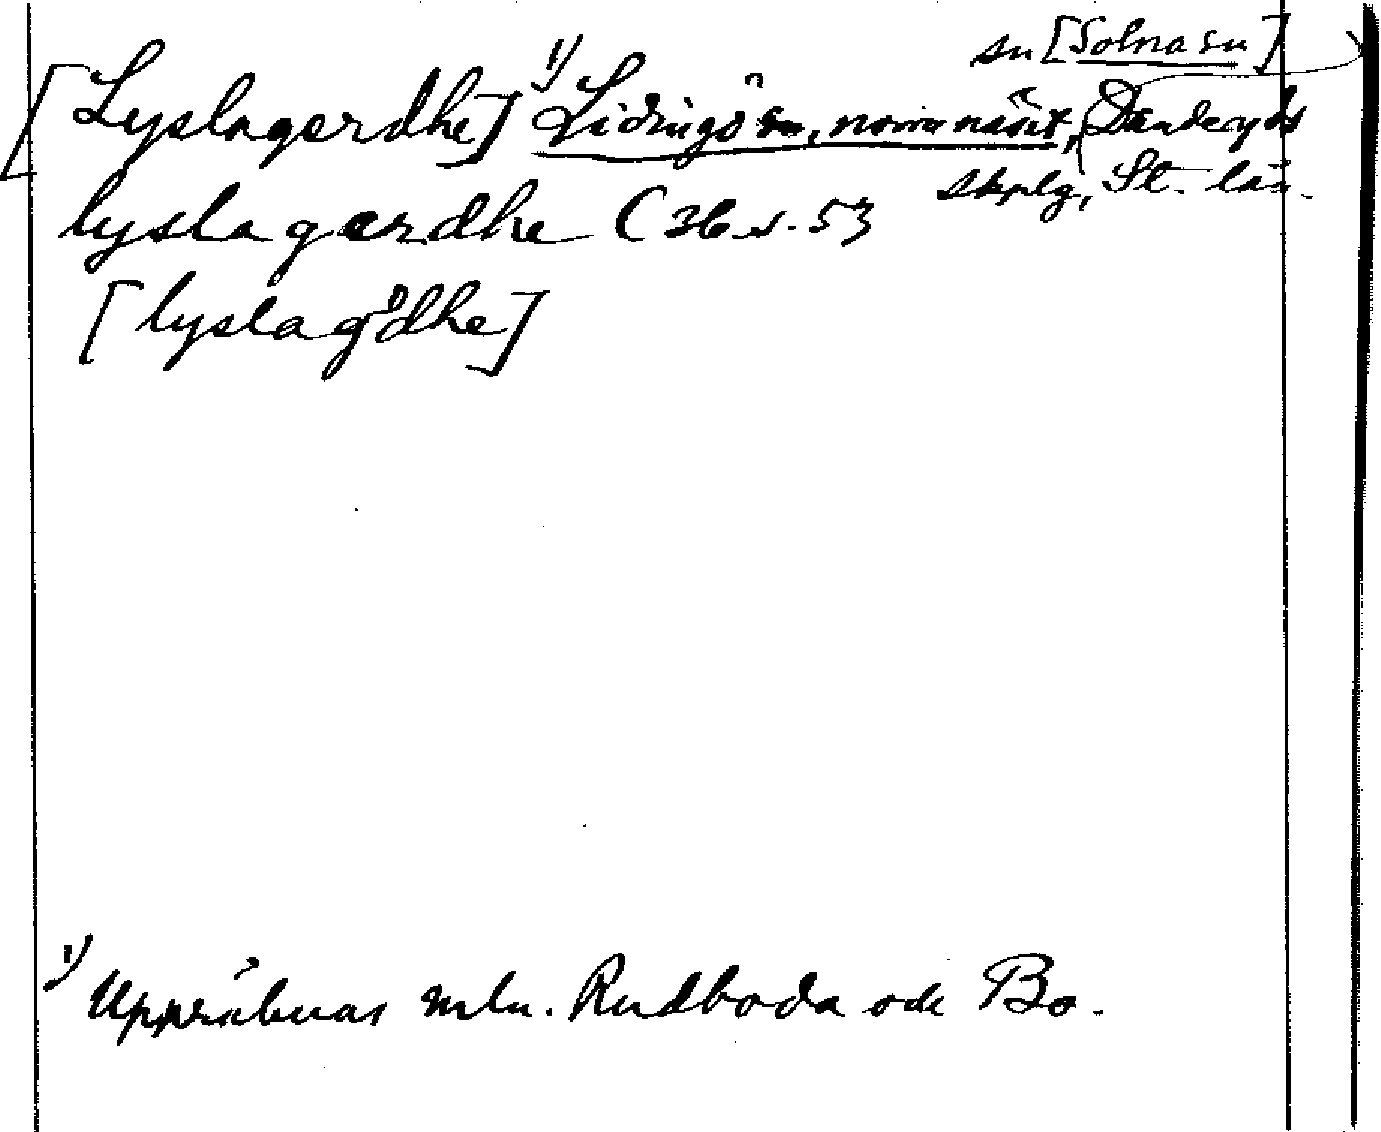 sn [Solna sn]
[Lyslagerdhe] 1) Lidingö sn, norra näset, Danderyds
skplg, St. län.
lysla gærdhe C 36 s. 53
[lysla gðdhe]
1) Uppräknas mln. Rudboda och Bo.